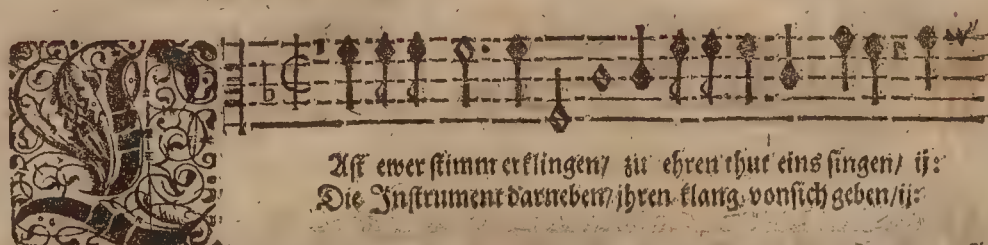 LAſt ewer ſtimm erklingen/ zu ehren thut eins ſingen/ ij:
Die Inſtrument darneben/ jhren klang vonſich geben/ij: